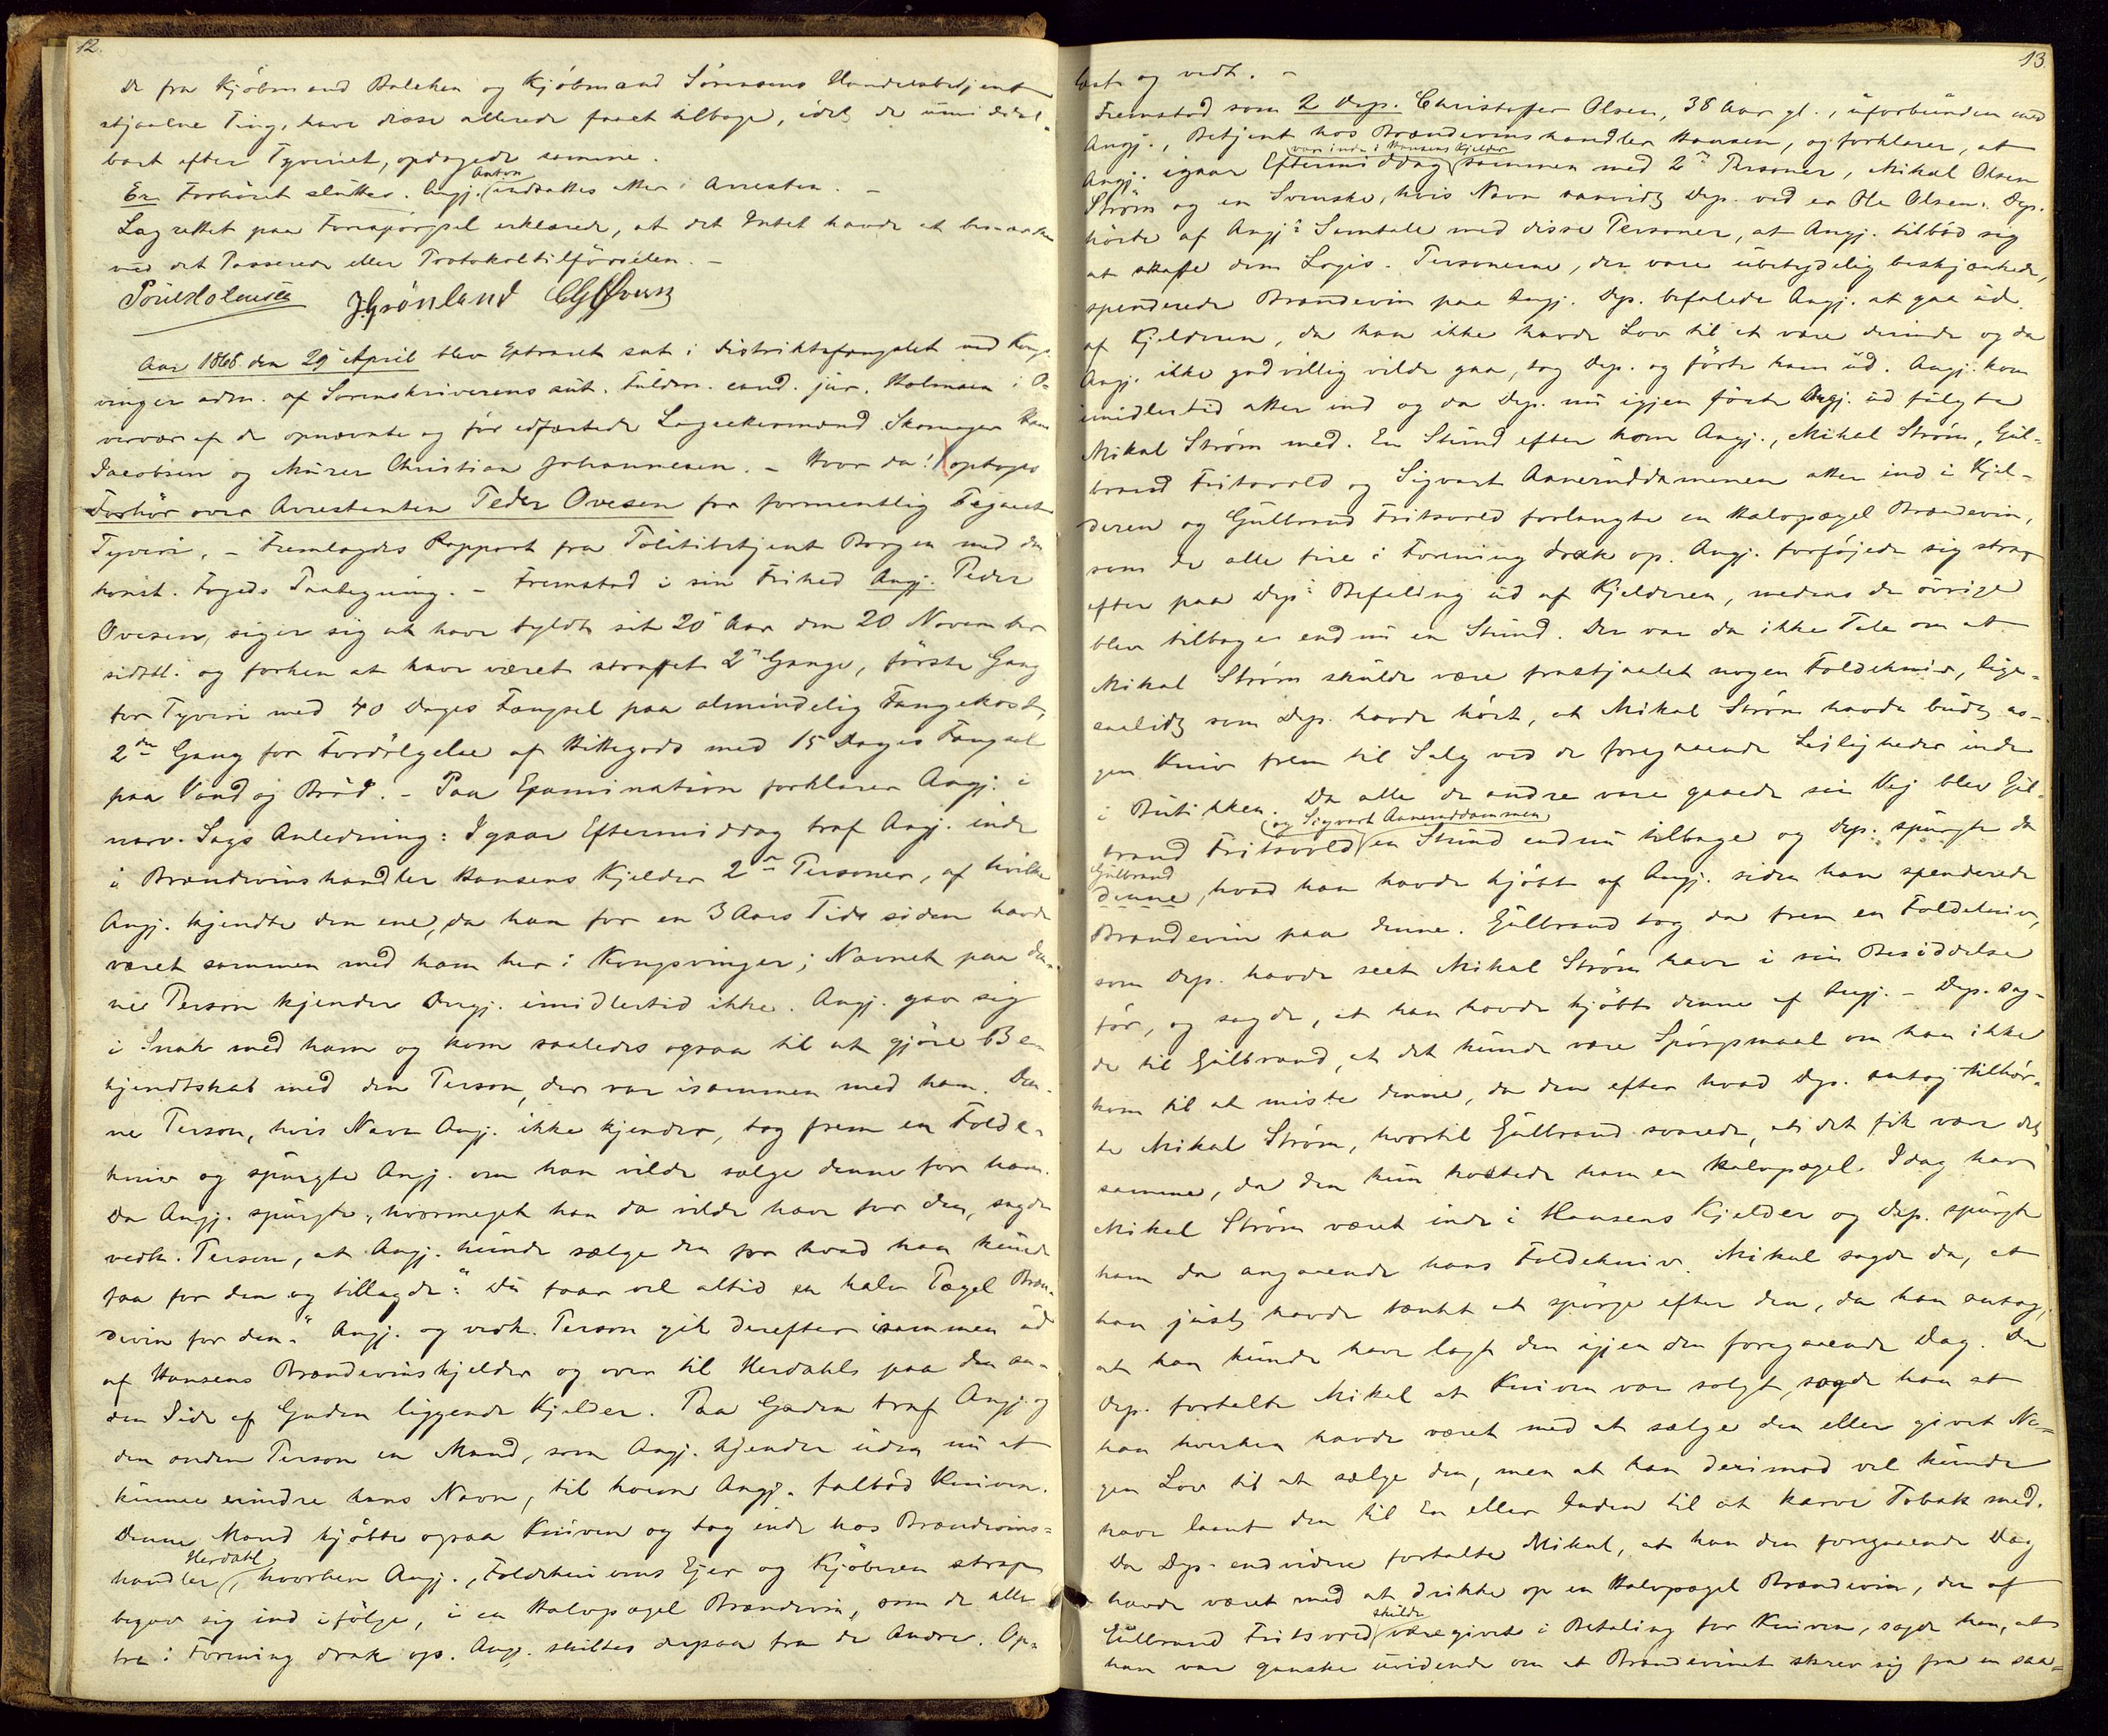 12.
De fra Kjöbmand Balchen og Kjöbmand Sörensens Handelsbetjent
stjaalne Ting, have disse allerede faaet tilbage, idet de umiddel-
bart efter Tyveriet, opdagede samme.
Ex. Forhöret sluttes. Angj. Anton indsattes atter i Arresten. –
Lagrettet paa Forespörgsel erklærede, at det Intet havde at bemærke
ved det Passerede eller Protokoltilförselen. –
Poul Holmsen J. Grönland
Aar 1868 den 29 April blev Extraret sat i Distriktsfængslet ved Kongs-
vinger adm. af Sorenskriverens aut. Fuldm. cand. jur. Holmsen i O-
vervær af de opnævnte og för edfæstede Lagrettesmænd Skomager Hans
Jacobsen og Murer Christian Johannesen. – Hvor da! optoges
Forhör over Arrestanten Peder Ovesen for formentlig begaaet
Tyveri, – Fremlagdes Rapport fra Politibetjent Borgen med den
konst. Fogeds Paategning. – Fremstod i sin Frihed Angj. Peder
Ovesen, siger sig at have fyldt sit 20 Aar den 20 November
sidstl. og forhen at have været straffet 2de Gange, förste Gang
for Tyveri med 40 Dages Fængsel paa almindelig Fangekost,
2den Gang for Fordölgelse af Hittegods med 15 Dages Fængsel
paa Vand og Bröd. – Paa Examination forklarer Angj. i
nærv. Sags Anledning: Igaar Eftermiddag traf Angj. inde
i Brændevinshandler Hansens Kjelder 2de Personer, af hvilke
Angj. kjendte den ene, da han for en 3 Aars Tid siden havde
været sammen med ham her i Kongsvinger; Navnet paa den-
ne Person kjender Angj. imidlertid ikke. Angj. gav sig
i Snak med ham og kom saaledes ogsaa til at gjöre Be-
kjendtskab med den Person, der var isammen med ham. Den-
ne Person, hvis Navn Angj. ikke kjender, tog frem en Folde-
kniv og spurgte Angj. om han vilde sælge denne for ham.
Da Angj. spurgte, hvormeget han da vilde have for den, sagde
vedk. Person, at Angj. kunde sælge den for hvad han kunde
faa for den og tillagde: "Du faar vel altid en halv Pægel Bræn-
devin for den." Angj. og vedk. Person gik derefter isammen ud
af Hansens Brændevinskjelder og over til Herdahls paa den an-
den Side af Gaden liggende Kjelder. Paa Gaden traf Angj. og
den anden Person en Mand, som Angj. kjender uden nu at
kunne erindre hans Navn, til hvem Angj. falböd Kniven.
Denne Mand kjöbte ogsaa Kniven og tog inde hos Brændevins-
handler Herdahl, hvorhen Angj., Foldeknivens Ejer og Kjöberen strax
begav sig ind ifölge, i en Halvpægel Brændevin, som de alle
tre i Forening drak op. Angj. skiltes derpaa fra de Andre. Op-
13.
læst og vedt. –
Fremstod som 2 Dep. Christoffer Olsen, 38 Aar gl., uforbunden med
Angj., Betjent hos Brændevinshandler Hansen, og forklarer, at
Angj. igaar Eftermiddag var inde i Hansens Kjelder sammen med 2de Personer, Mikal Olsen
Ström og en Svenske, hvis Navn saavidt Dep. ved er Ole Olsen. Dep.
hörte af Angj.s Samtale med disse Personer, at Angj. tilböd sig
at skaffe dem Logis. Personerne, der vare ubetydelig beskjænkede,
spenderede Brændevin paa Angj. Dep. befalede Angj. at gaa ud
af Kjelderen, da han ikke havde Lov til at være derinde og da
Angj. ikke godvillig vilde gaa, tog Dep. og förte ham ud. Angj. kom
imidlertid atter ind og da Dep. nu igjen förte Angj. ud fulgte
Mikal Ström med. En Stund efter kom Angj., Mikal Ström, Gul-
brand Fritsvold og Sigvart Aaneruddammen atter ind i Kjel-
deren og Gulbrand Fritsvold forlangte en Halvpægel Brændevin,
som de alle fire i Forening drak op. Angj. forföjede sig strax
efter paa Dep.s Befaling ud af Kjelderen, medens de övrige
blev tilbage endnu en Stund. Der var da ikke Tale om at
Mikal Ström skulde være frastjaalet nogen Foldekniv, lige-
saalidt som Dep. havde hört, at Mikal Ström havde budt no-
gen Kniv frem til Salg ved de foregaaende Lejligheder inde
i Butikken. Da alle de andre vare gaaede sin Vej blev Gul-
brand Fritsvold og Sigvart Aaneruddammen en Stund endnu tilbage og Dep. spurgte da
Gulbrand denne, hvad han havde kjöbt af Angj. siden han spenderede
Brændevin paa denne. Gulbrand tog da frem en Foldekniv,
som Dep. havde seet Mikal Ström have i sin Besiddelse
för, og sagde, at han havde kjöbt denne af Angj. – Dep. sag-
de til Gulbrand, at det kunde være Spörgsmaal om han ikke
kom til at miste denne, da den efter hvad Dep. antog tilhör-
te Mikal Ström, hvortil Gulbrand svarede, at det fik være det
samme, da den kun kostede ham en Halvpægel. Idag har
Mikal Ström været inde i Hansens Kjelder og Dep. spurgte
ham da angaaende hans Foldekniv. Mikal sagde da, at
han just havde tænkt at spörge efter den, da han antog,
at han kunde have lagt den igjen den foregaaende Dag. Da
Dep. fortalte Mikal at Kniven var solgt, sagde han at
han hverken havde været med at sælge den eller givet No-
gen Lov til at sælge den, men at han derimod vel kunde
have laant den til En eller Anden til at karve Tobak med.
Da Dep. endvidere fortalte Mikal, at han den foregaaende Dag
havde været med at drikke op en Halvpægel Brændevin, der af
Gulbrand Fritsvold skulde være givet i Betaling for Kniven, sagde han, at
han var ganske uvidende om at Brændevinet skrev sig fra en saa-